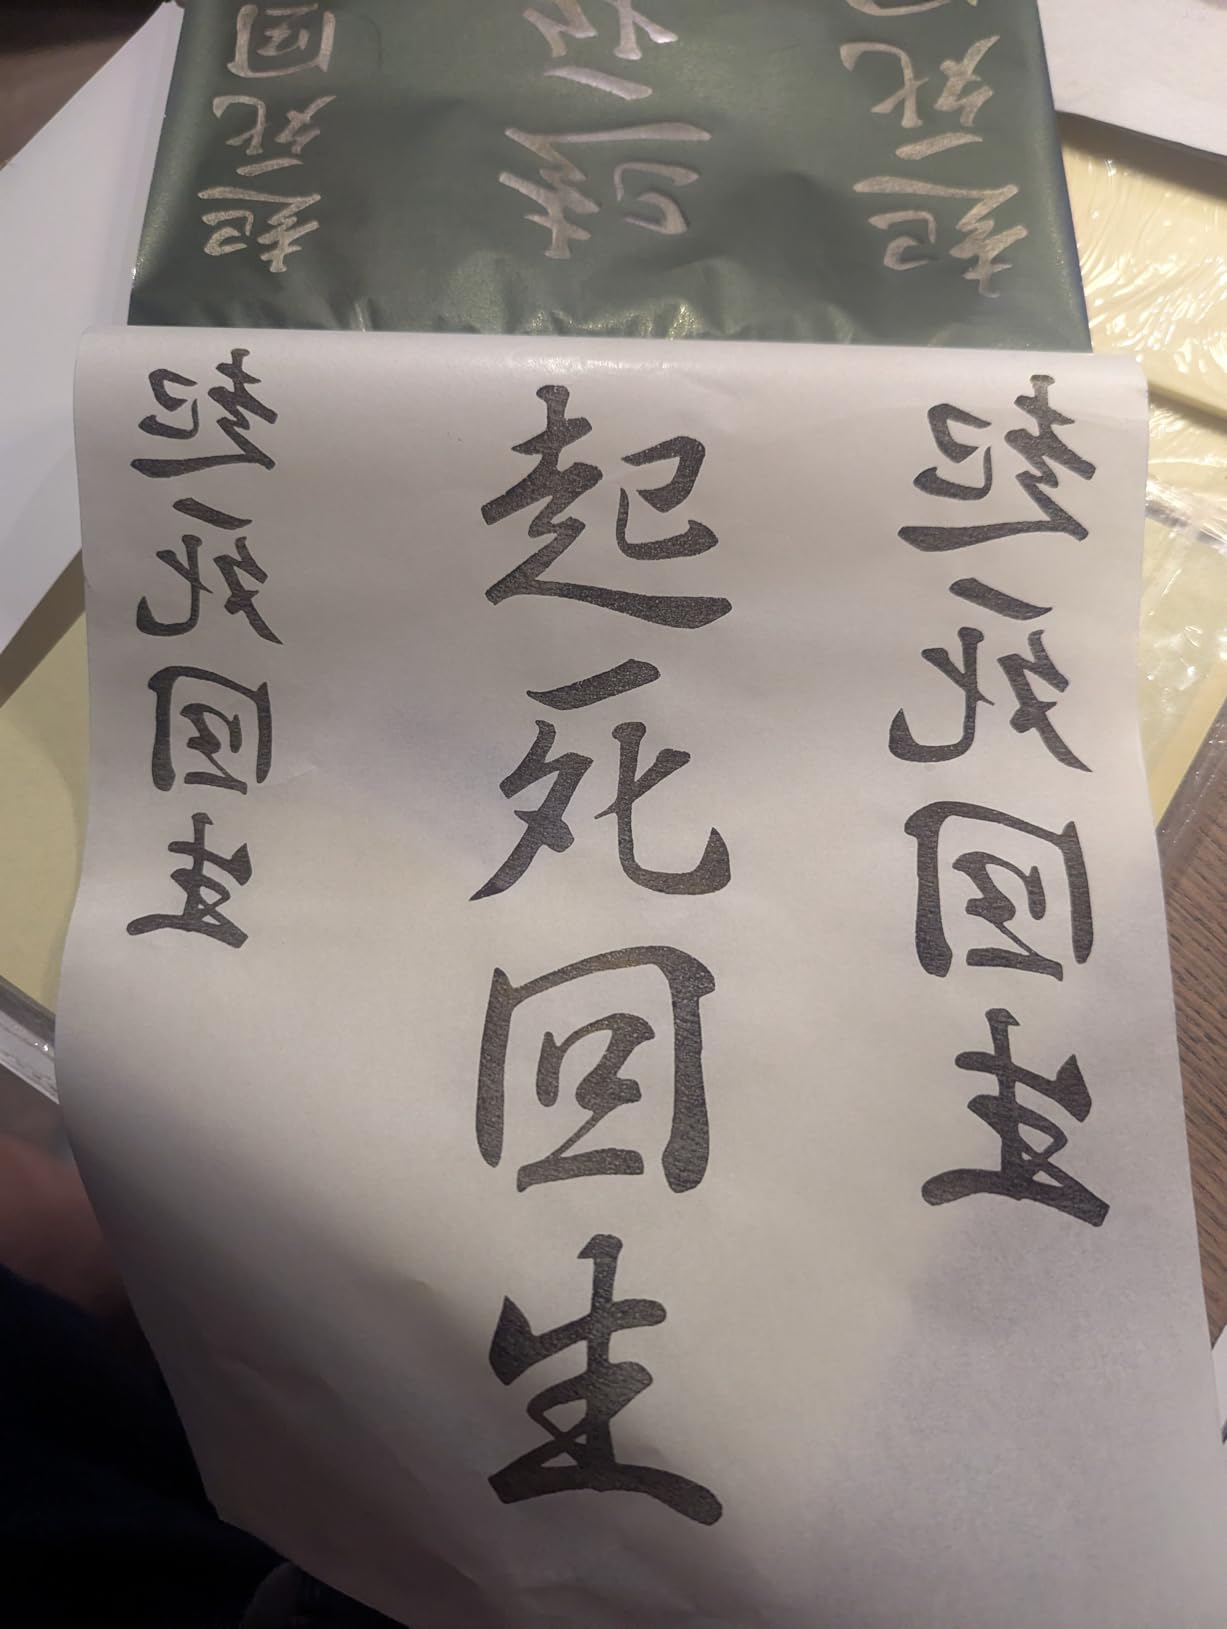 起死回生
起死回生
起死回生
起死回
起死
起死